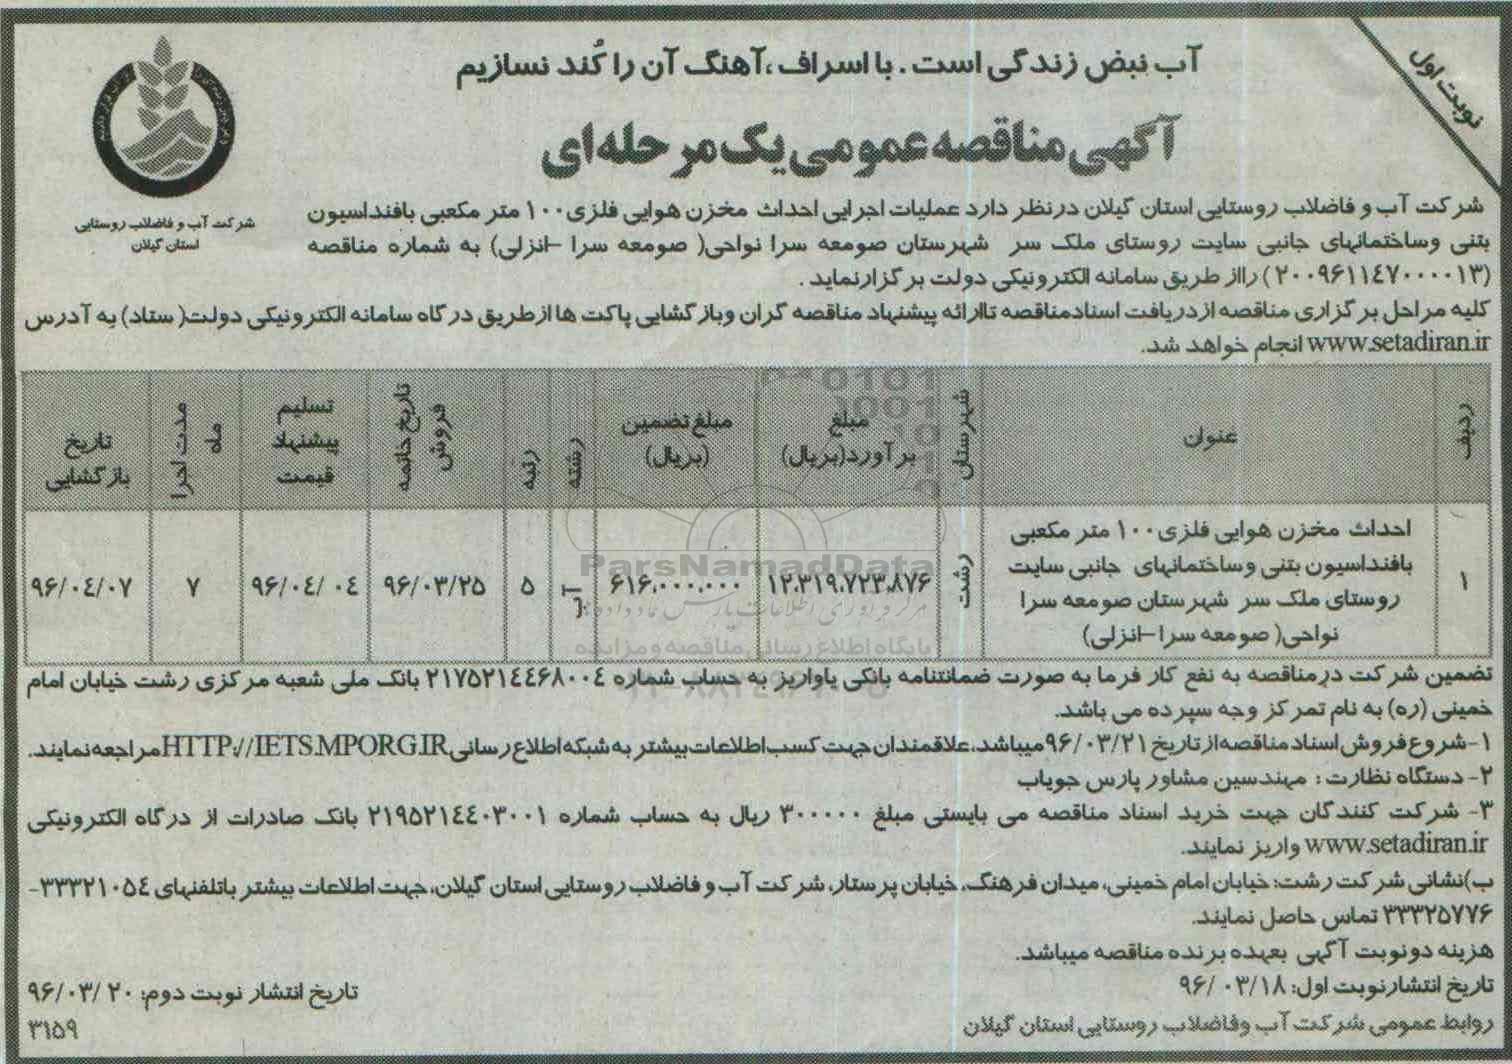 نوبت اول
آب نبض زندگی است. با اسراف، آهنگ آن را کُند نسازیم
آگهی مناقصه عمومی یک مرحله ای
شرکت آب و فاضلاب روستایی
استان گیلان
شرکت آب و فاضلاب روستایی استان گیلان درنظر دارد عملیات اجرایی احداث مخزن هوایی فلزی ۱۰۰ متر مکعبی بافنداسیون
بتنی وساختمانهای جانبی سایت روستای ملک سر شهرستان صومعه سرا نواحی( صومعه سرا -انزلی) به شماره مناقصه
(۲۰۰۹۶۱۱۴۷۰۰۰۰۱۳) رااز طریق سامانه الکترونیکی دولت برگزارنماید.
کلیه مراحل برگزاری مناقصه ازدریافت اسنادمناقصه تاارائه پیشنهاد مناقصه گران وبازگشایی پاکت ها ازطریق درگاه سامانه الکترونیکی دولت( ستاد) به آدرس
www.setadiran.ir انجام خواهد شد.
ردیف
عنوان
شهرستان
مبلغ
برآورد(بریال)
مبلغ تضمین
(بریال)
رشته
رتبه
تاریخ خاتمه
فروش
تسلیم
پیشنهاد
قیمت
مدت اجرا
ماه
تاریخ
بازگشایی
۱
احداث مخزن هوایی فلزی ۱۰۰ متر مکعبی
بافنداسیون بتنی وساختمانهای جانبی سایت
روستای ملک سر شهرستان صومعه سرا
نواحی( صومعه سرا -انزلی)
رشت
۱۲،۳۱۹،۷۲۳،۸۷۶
۶۱۶،۰۰۰،۰۰۰
آب
۵
۹۶/۰۳/۲۵
۹۶/۰۴/ ۰۴
۷
۹۶/۰۴/۰۷
ParsNamadData
مرکز فرآوری اطلاعات پارس نماد داده ها
پایگاه اطلاع رسانی مناقصه و مزایده
تضمین شرکت درمناقصه به نفع کار فرما به صورت ضمانتنامه بانکی یاواریز به حساب شماره ۲۱۷۵۲۱۴۴۶۸۰۰۴ بانک ملی شعبه مرکزی رشت خیابان امام
خمینی (ره) به نام تمرکز وجه سپرده می باشد.
۱-شروع فروش اسناد مناقصه از تاریخ ۹۶/۰۳/۲۱ میباشد، علاقمندان جهت کسب اطلاعات بیشتر به شبکه اطلاع رسانی HTTP://IETS.MPORG.IR مراجعه نمایند.
۲- دستگاه نظارت : مهندسین مشاور پارس جویاب
۳- شرکت کنندگان جهت خرید اسناد مناقصه می بایستی مبلغ ۳۰۰۰۰۰ ریال به حساب شماره ۲۱۹۵۲۱۴۴۰۳۰۰۱ بانک صادرات از درگاه الکترونیکی
www.setadiran.ir واریز نمایند.
ب)نشانی شرکت رشت: خیابان امام خمینی، میدان فرهنگ، خیابان پرستار، شرکت آب و فاضلاب روستایی استان گیلان، جهت اطلاعات بیشتر باتلفنهای ۳۳۳۲۱۰۵۴-
۳۳۳۲۵۷۷۶ تماس حاصل نمایند.
هزینه دونوبت آگهی بعهده برنده مناقصه میباشد.
تاریخ انتشارنوبت اول: ۹۶/ ۰۳/۱۸
تاریخ انتشار نوبت دوم: ۹۶/۰۳/ ۲۰
روابط عمومی شرکت آب وفاضلاب روستایی استان گیلان
۳۱۵۹